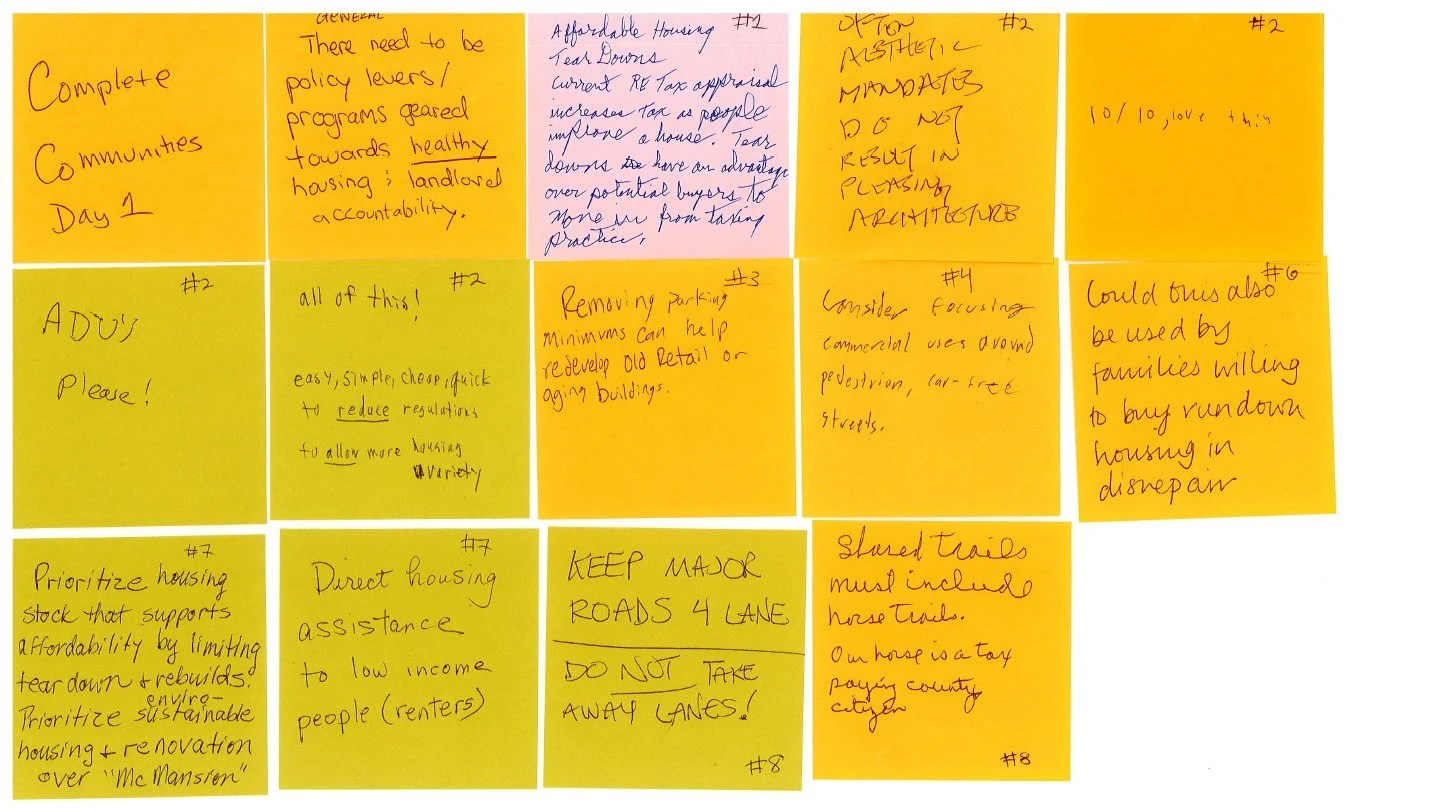 Complete
Communities
Day 1
GENERAL
There need to be
policy levers/
programs geared
towards healthy
housing & landlord
accountability.
#1
Affordable Housing
Tear Downs
Current RE Tax appraisal
increases tax as people
improve a house. Tear
downs have an advantage
over potential buyers to
move in from taxing
practice.
#2
OFTEN
AESTHETIC
MANDATES
DO NOT
RESULT IN
PLEASING
ARCHITECTURE
#2
10/10, love this
#2
ADU's
Please!
#2
all of this!
easy, simple, cheap, quick
to reduce regulations
to allow more housing
variety
#3
Removing parking
minimums can help
redevelop old Retail or
aging buildings.
#4
Consider focusing
commercial uses around
pedestrian, car-free
streets.
#6
Could this also
be used by
families willing
to buy rundown
housing in
disrepair
#7
Prioritize housing
stock that supports
affordability by limiting
tear down + rebuilds.
enviro-
Prioritize sustainable
housing + renovation
over "McMansion"
#7
Direct housing
assistance
to low income
people (renters)
KEEP MAJOR
ROADS 4 LANE
DO NOT TAKE
AWAY LANES!
#8
Shared trails
must include
horse trails.
Our horse is a tax
paying county
citizen
#8